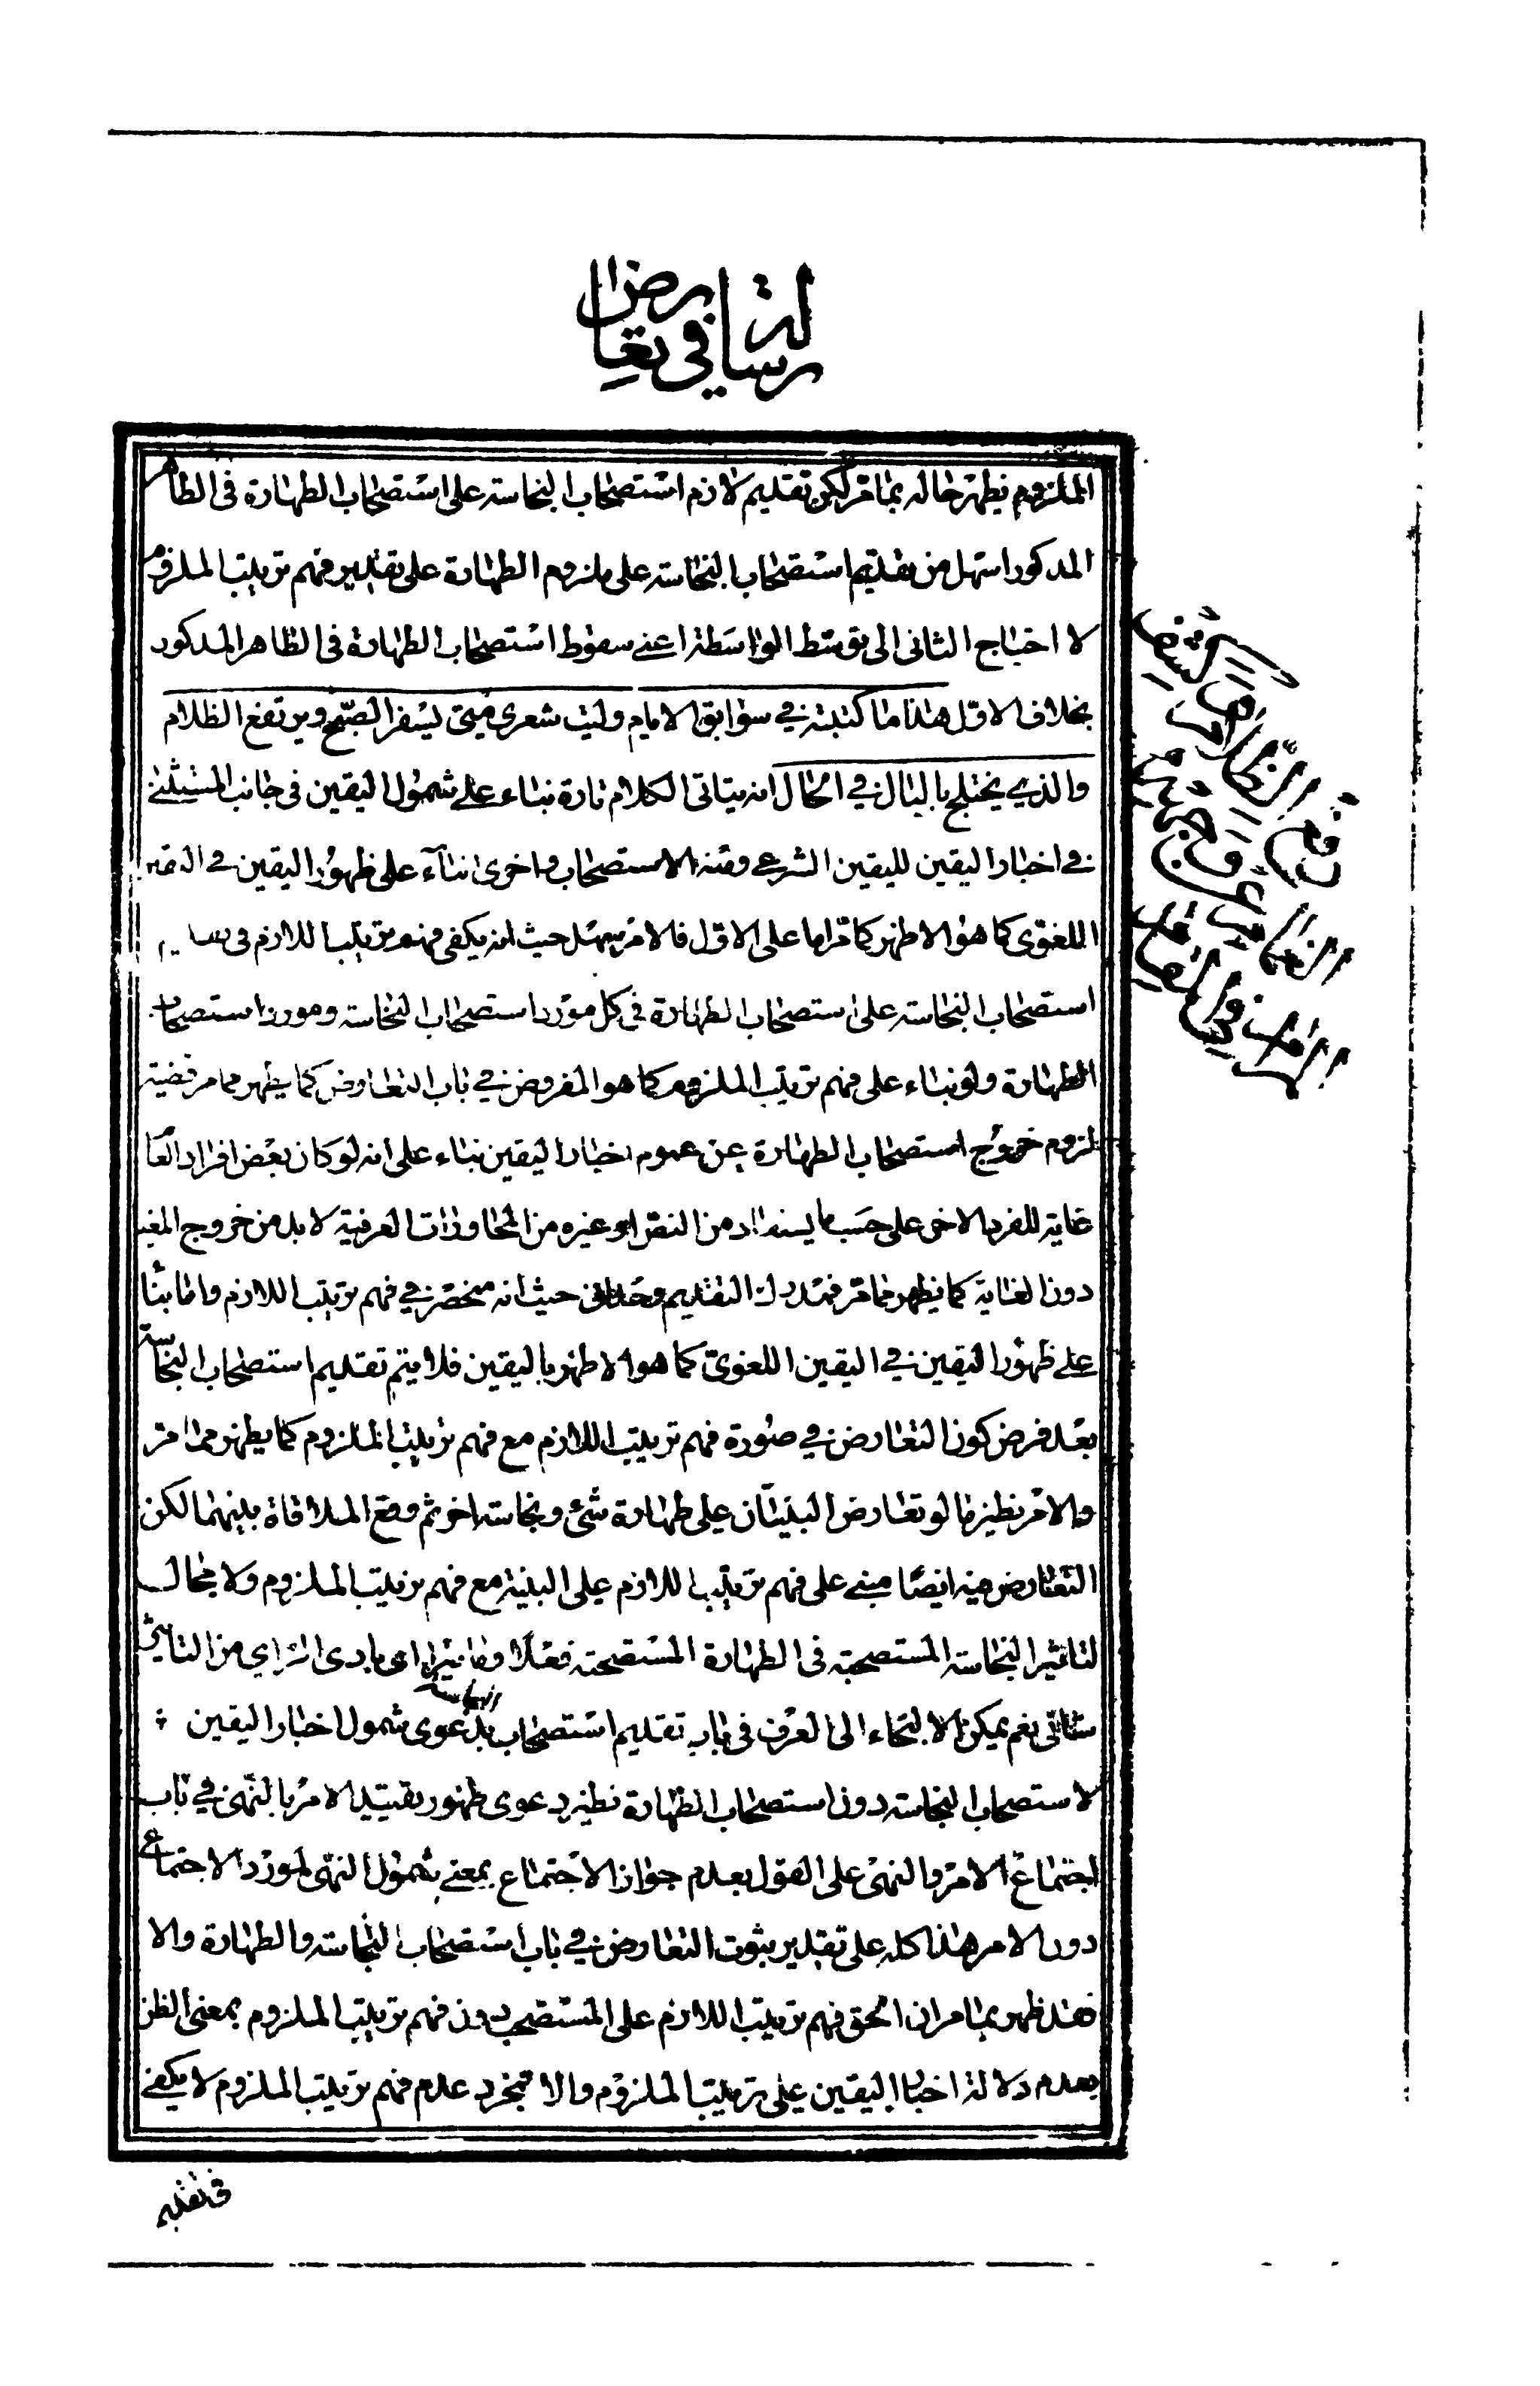 رسالة في تعارض
الملزوم فيظهر حاله بما مر لكن تقديم لازم استصحاب النجاسة على استصحاب الطهارة فى الظاهر
المذكور اسهل من تقديم استصحاب النجاسة على ملزوم الطهارة على تقدير فهم ترتيب الملزوم
لاحتياج الثانى الى توسّط الواسطة اعنى سقوط استصحاب الطهارة فى الظاهر المذكور
بخلاف الاوّل هذا ما كتبته في سوابق الايام وليت شعرى متى يسفر الصّبح ويرتفع الظلام
والذي يختلج بالبال في الحال انه يتاتى الكلام تارة بناء على شمول اليقين فى جانب المستثنى
في اخبار اليقين لليقين الشرعي ومنه الاستصحاب واخرى بناء على ظهور اليقين في اليقين
اللغوى كما هو الاظهر كما مرّ اما على الاول فالامر سهل حيث انه يكفى فهم ترتيب اللازم فى
استصحاب النجاسة على استصحاب الطهارة فى كل مورد استصحاب النجاسة ومورد استصحاب
الطهارة ولو بناء على فهم ترتيب الملزوم كما هو المفروض في باب التعارض كما يظهر مما مر قضية
لزوم خروج استصحاب الطهارة عن عموم اخبار اليقين بناء على انه لو كان بعض افراد العا
غاية للفرد الاخر على حسب ما يستفاد من النص او غيره من المحاورات العرفية لا بد من خروج المغيا
دون الغاية كما يظهر مما مر حيث انه منحصر في فهم ترتيب اللازم واما بناء
على ظهور اليقين في اليقين اللغوىّ كما هو الاظهر باليقين فلا يتم تقديم استصحاب النجاسة
بعد فرض كون التعارض في صورة فهم ترتيب اللازم مع فهم ترتيب الملزوم كما يظهر مما مر
والامر نظير ما لو تعارض البيّنتان على طهارة شئ ونجاسة اخر ثم وقع الملاقاة بينهما لكن
التعارض فيه ايضا مبني على فهم ترتيب اللازم على البينة مع فهم ترتيب الملزوم ولا مجال
لتاثير النجاسة المستصحبة فى الطهارة المستصحبة فعلا بادى الراي من التاثير
نعم يمكن الالتجاء الى العرف فى باب تقديم استصحاب النجاسة بدعوى شمول اخبار اليقين
لاستصحاب النجاسة دون استصحاب الطهارة نظير دعوى ظهور تقييد الامر بالنهى في باب
اجتماع الامر والنهى على القول بعدم جواز الاجتماع بمعنى شمول النهى لمورد الاجتماع
دون الامر هذا كله على تقدير ثبوت التعارض في باب استصحاب النجاسة والطهارة والا
فقد ظهر بما مر ان الحق فهم ترتيب اللازم على المستصحب دون فهم ترتيب الملزوم بمعنى الظن
بعدم دلالة اخبار اليقين على ترتيب الملزوم والا فمجرد عدم فهم ترتيب الملزوم لا يكفى